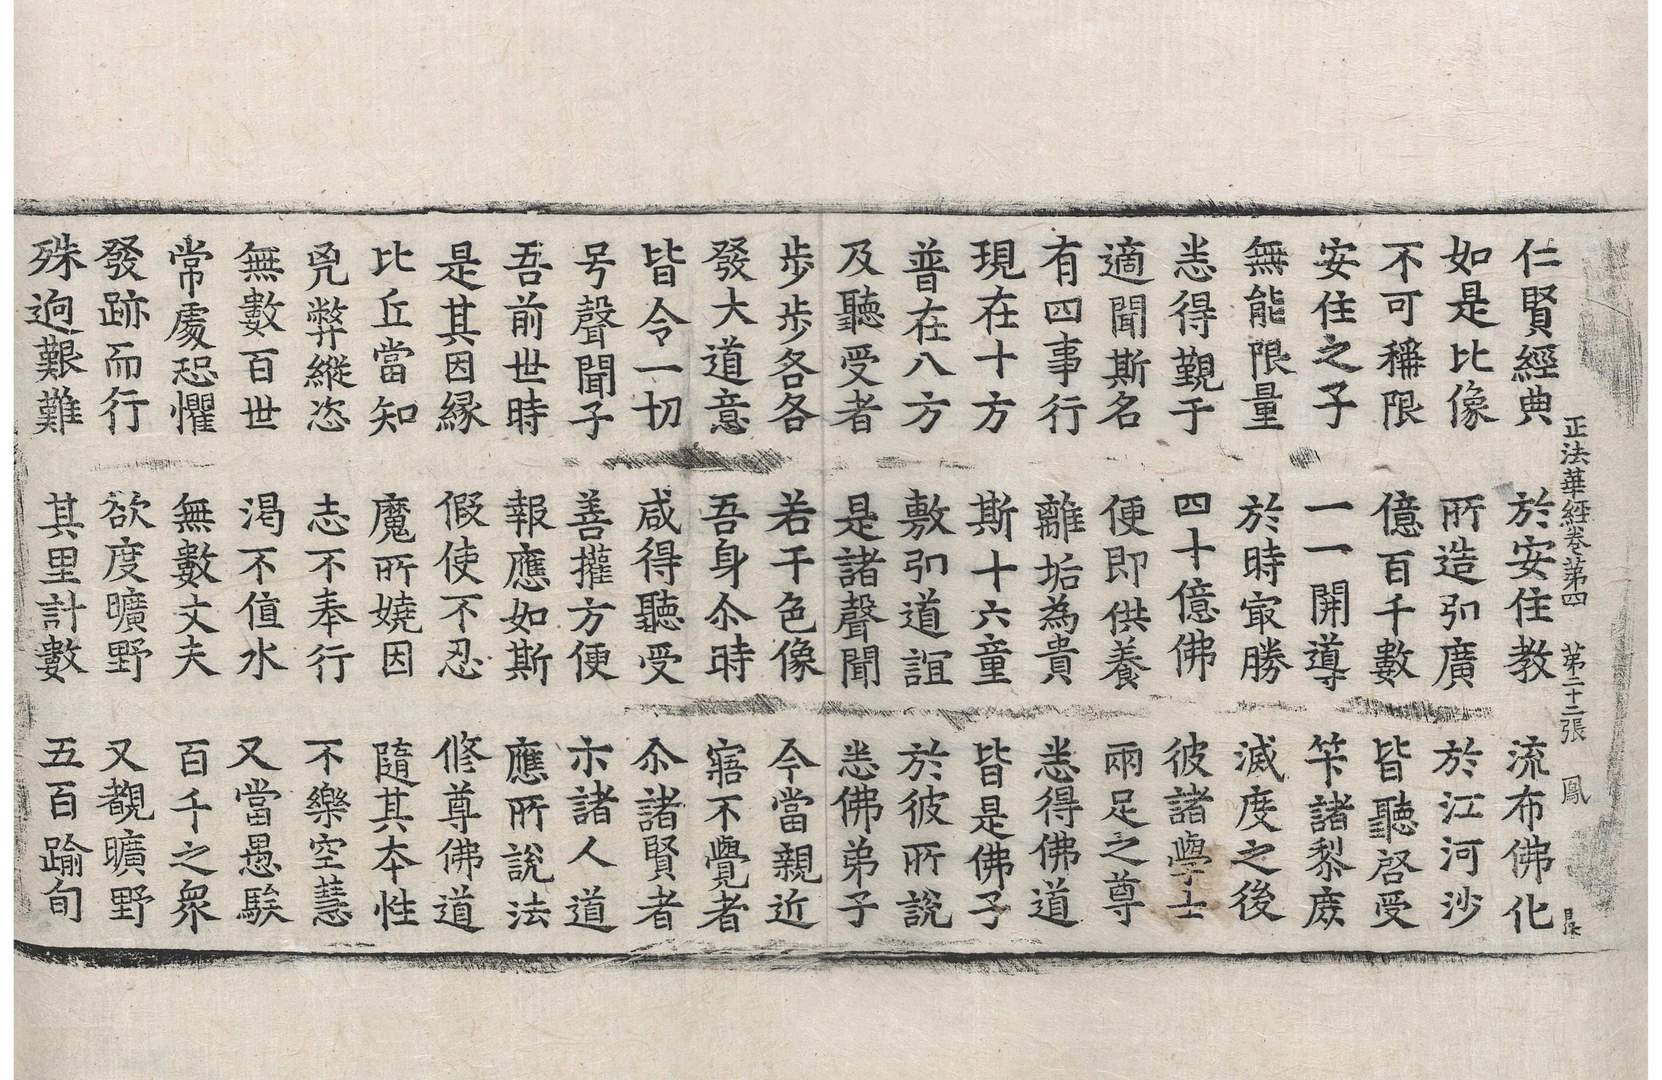 正法華經卷第四　第二十二張　鳳
仁賢經典　於安住教　流布佛化
如是比像　所造引廣　於江河沙
不可稱限　億百千數　皆聽啓受
安住之子　一一開導　等諸黎庶
無能限量　於時㝡勝　滅度之後
悉得覲于　四十億佛　彼諸學士
適聞斯名　便即供養　兩足之尊
有四事行　離垢為貴　悉得佛道
現在十方　斯十六童　皆是佛子
普在八方　敷引道誼　於彼所說
及聽受者　是諸聲聞　悉佛弟子
步步各各　若干色像　今當親近
發大道意　吾身尒時　寤不覺者
皆令一切　咸得聽受　尒諸賢者
号聲聞子　善權方便　示諸人道
吾前世時　報應如斯　應所說法
是其因緣　假使不忍　修尊佛道
比丘當知　魔所嬈因　隨其本性
兇弊縱恣　志不奉行　不樂空慧
無數百世　渴不值水　又當愚騃
常處恐懼　無數丈夫　百千之衆
發跡而行　欲度曠野　又覩曠野
殊逈艱難　其里計數　五百踰旬